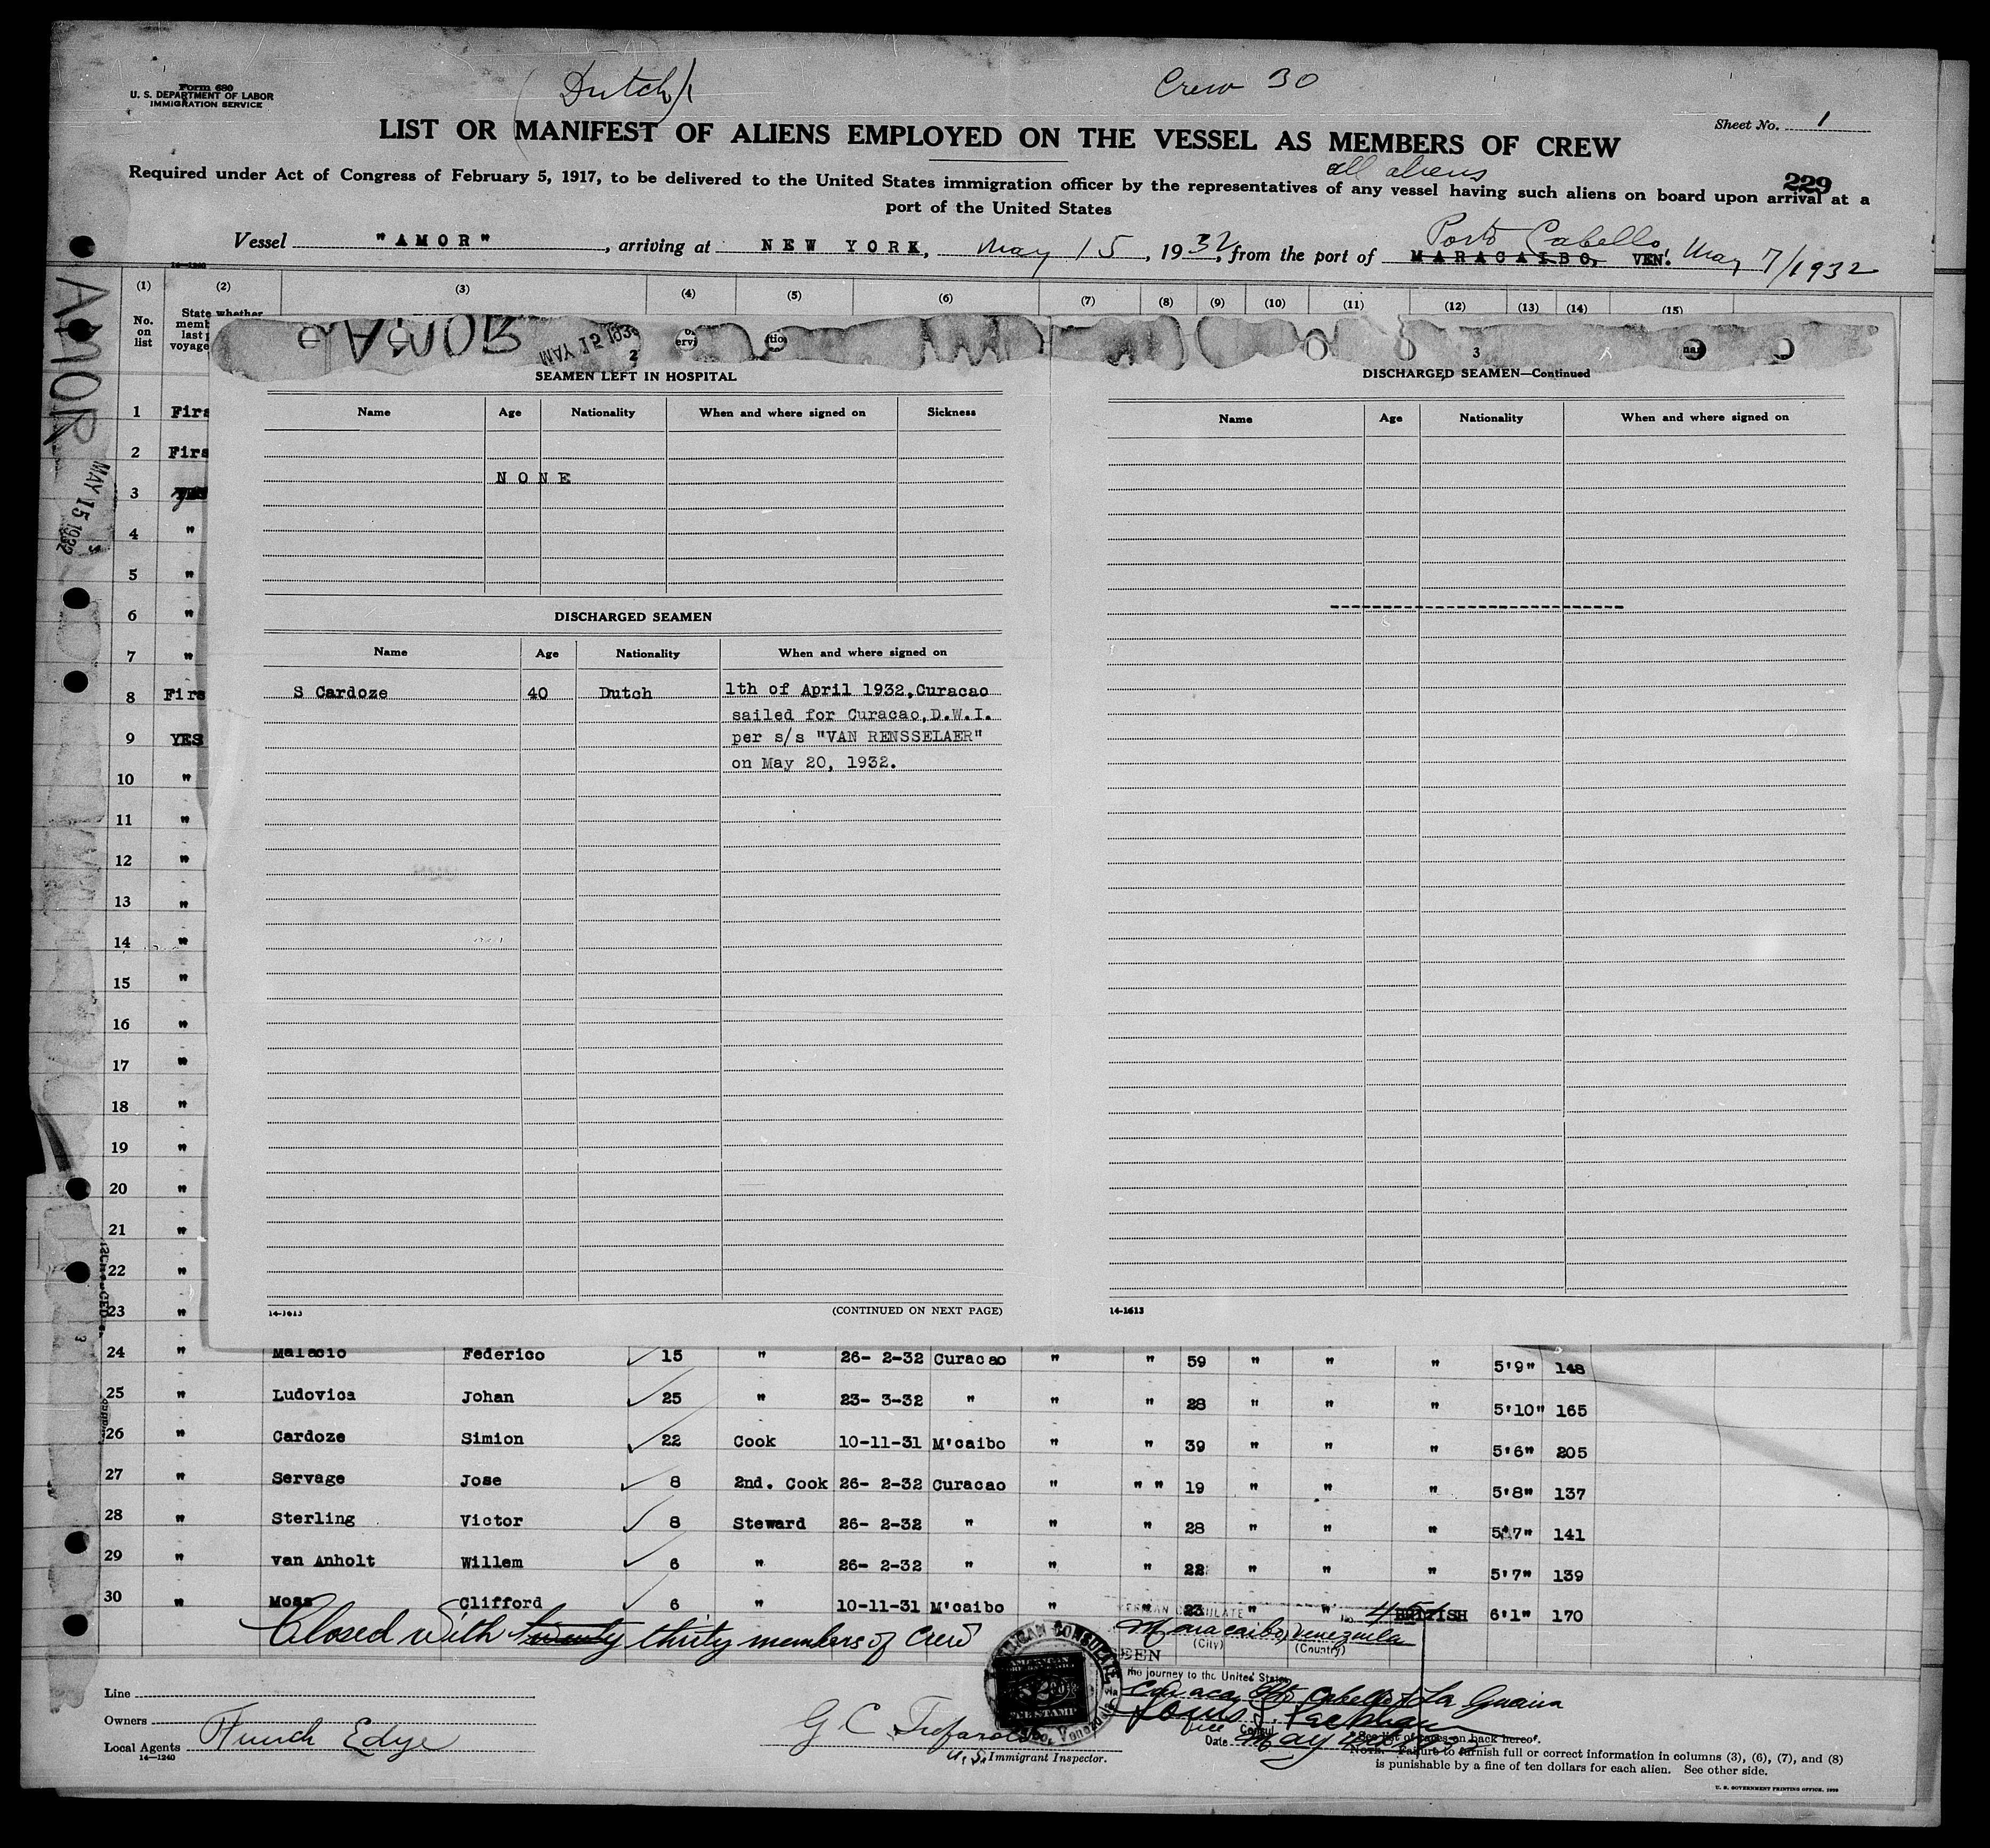 Form 680
U. S. DEPARTMENT OF LABOR
IMMIGRATION SERVICE
(Dutch)
Crew 30
Sheet No. 1
LIST OR MANIFEST OF ALIENS EMPLOYED ON THE VESSEL AS MEMBERS OF CREW
all aliens
229
Required under Act of Congress of February 5, 1917, to be delivered to the United States immigration officer by the representatives of any vessel having such aliens on board upon arrival at a
port of the United States
Porto Cabello,
Vessel "AMOR", arriving at NEW YORK, May 15, 1932, from the port of MARACAIBO, VEN. May 7/1932
14-1240
(1) (2) (3) (4) (5) (6) (7) (8) (9) (10) (11) (12) (13) (14) (15)
No. on list
State whether
last
voyage
AMOR
MAY 15 1932
AMOR
MAY 15 1932
2
3
SEAMEN LEFT IN HOSPITAL
Name Age Nationality When and where signed on Sickness
NONE
DISCHARGED SEAMEN
Name Age Nationality When and where signed on
S Cardoze 40 Dutch 1th of April 1932, Curacao
sailed for Curacao, D.W.I.
per s/s "VAN RENSSELAER"
on May 20, 1932.
14-1613
(CONTINUED ON NEXT PAGE)
DISCHARGED SEAMEN—Continued
Name Age Nationality When and where signed on
14-1613
1 Firs
2 Firs
3
4 "
5 "
6 "
7 "
8 Firs
9 YES
10 "
11 "
12 "
13 "
14 "
15 "
16 "
17 "
18 "
19 "
20 "
21 "
22 "
23 "
24 " Malacio Federico 15 " 26- 2-32 Curacao " " 59 " " " 5'9" 148
25 " Ludovica Johan 25 " 23- 3-32 " " " 28 " " " 5'10" 165
26 " Cardoze Simion 22 Cook 10-11-31 M'caibo " " 39 " " " 5'6" 205
27 " Servage Jose 8 2nd. Cook 26- 2-32 Curacao " " " 19 " " " 5'8" 137
28 " Sterling Victor 8 Steward 26- 2-32 " " " 28 " " " 5'7" 141
29 " van Anholt Willem 6 " 26- 2-32 " " " 22 " " " 5'7" 139
30 " Moss Clifford 6 " 10-11-31 M'caibo " " 23 " " BRITISH 6'1" 170
Closed with twenty thirty members of crew
AMERICAN CONSULATE
Maracaibo, Venezuela
(City) (Country)
the journey to the United States
via Curacao, Pto Cabello & La Guaira
Consul
Date May
Line
Owners
Local Agents Funch Edye
14-1240
G C
U. S. Immigrant Inspector.
See list of races on back hereof.
NOTE.—Failure to furnish full or correct information in columns (3), (6), (7), and (8)
is punishable by a fine of ten dollars for each alien. See other side.
U. S. GOVERNMENT PRINTING OFFICE